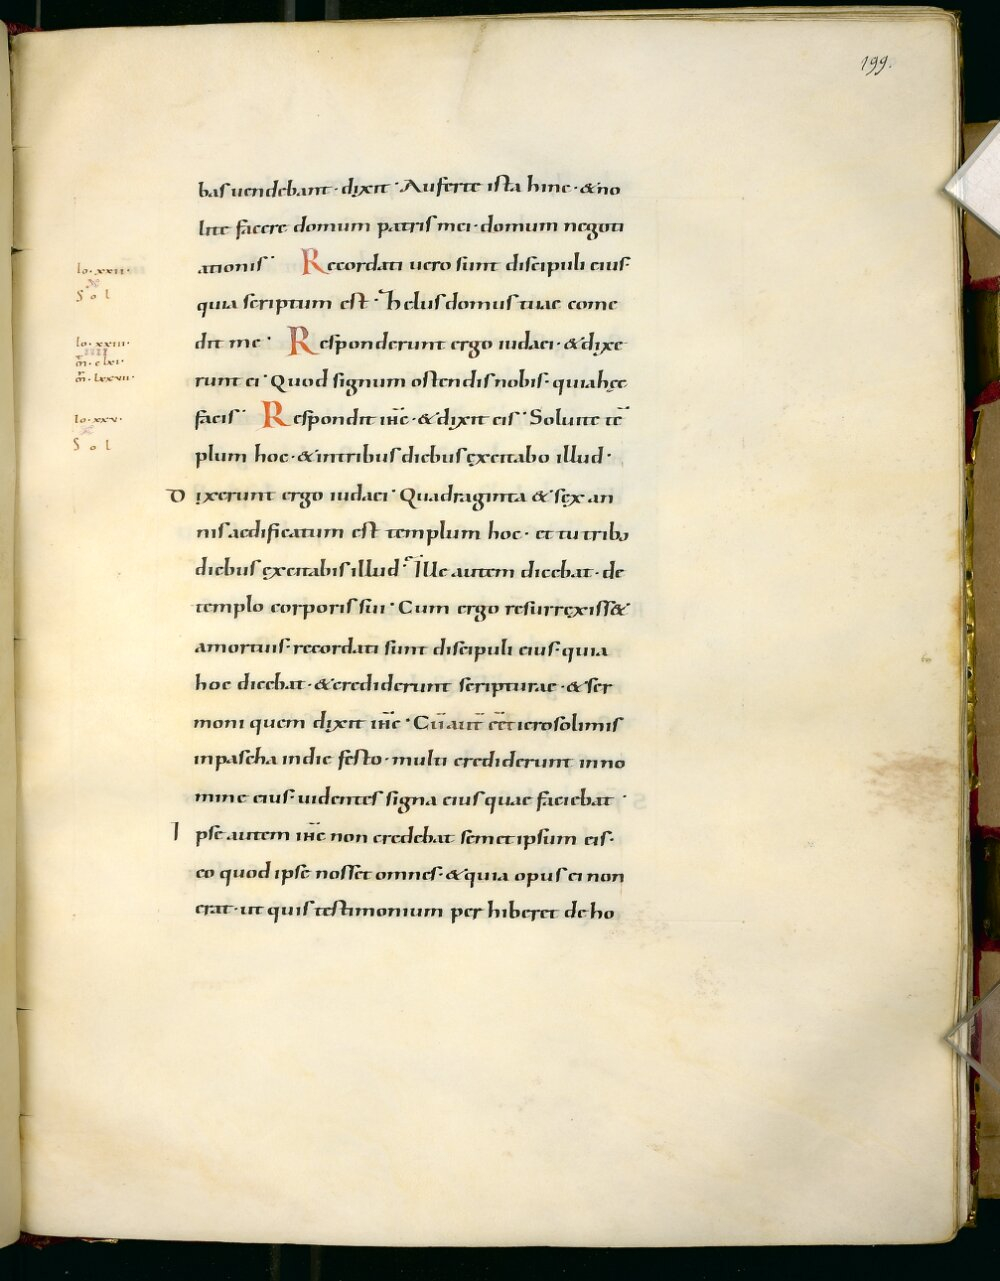 199.
bas uendebant · dixit · Auferte ista hinc · & no
lite facere domum patris mei · domum negoti
ationis · Recordati uero sunt discipuli eius ·
Io · xxii ·
x
Sol
quia scriptum est · Zelus domus tuae come
dit me · Responderunt ergo iudaei · & dixe
Io · xxiii ·
IIII
m̄ · cclxi ·
m̄r · lxxvii ·
runt ei · Quod signum ostendis nobis · quia hęc
facis · Respondit ih̄c · & dixit eis · Soluite tē
Io · xxv ·
x
Sol
plum hoc · & intribus diebus excitabo illud ·
Dixerunt ergo iudaei · Quadraginta & sex an
nis aedificatum est templum hoc · et tu tribus
diebus excitabis illud · Ille autem dicebat · de
templo corporis sui · Cum ergo resurrexiss&
amortuis · recordati sunt discipuli eius · quia
hoc dicebat · & crediderunt scripturae · & ser
moni quem dixit ih̄c · Cū aut̄ eēt ierosolimis
inpascha indie festo · multi crediderunt inno
mine eius · uidentes signa eius quae faciebat ·
Ipse autem ih̄c non credebat semetipsum eis ·
eo quod ipse nosset omnes · & quia opus ei non
erat · ut quis testimonium per hiberet de ho